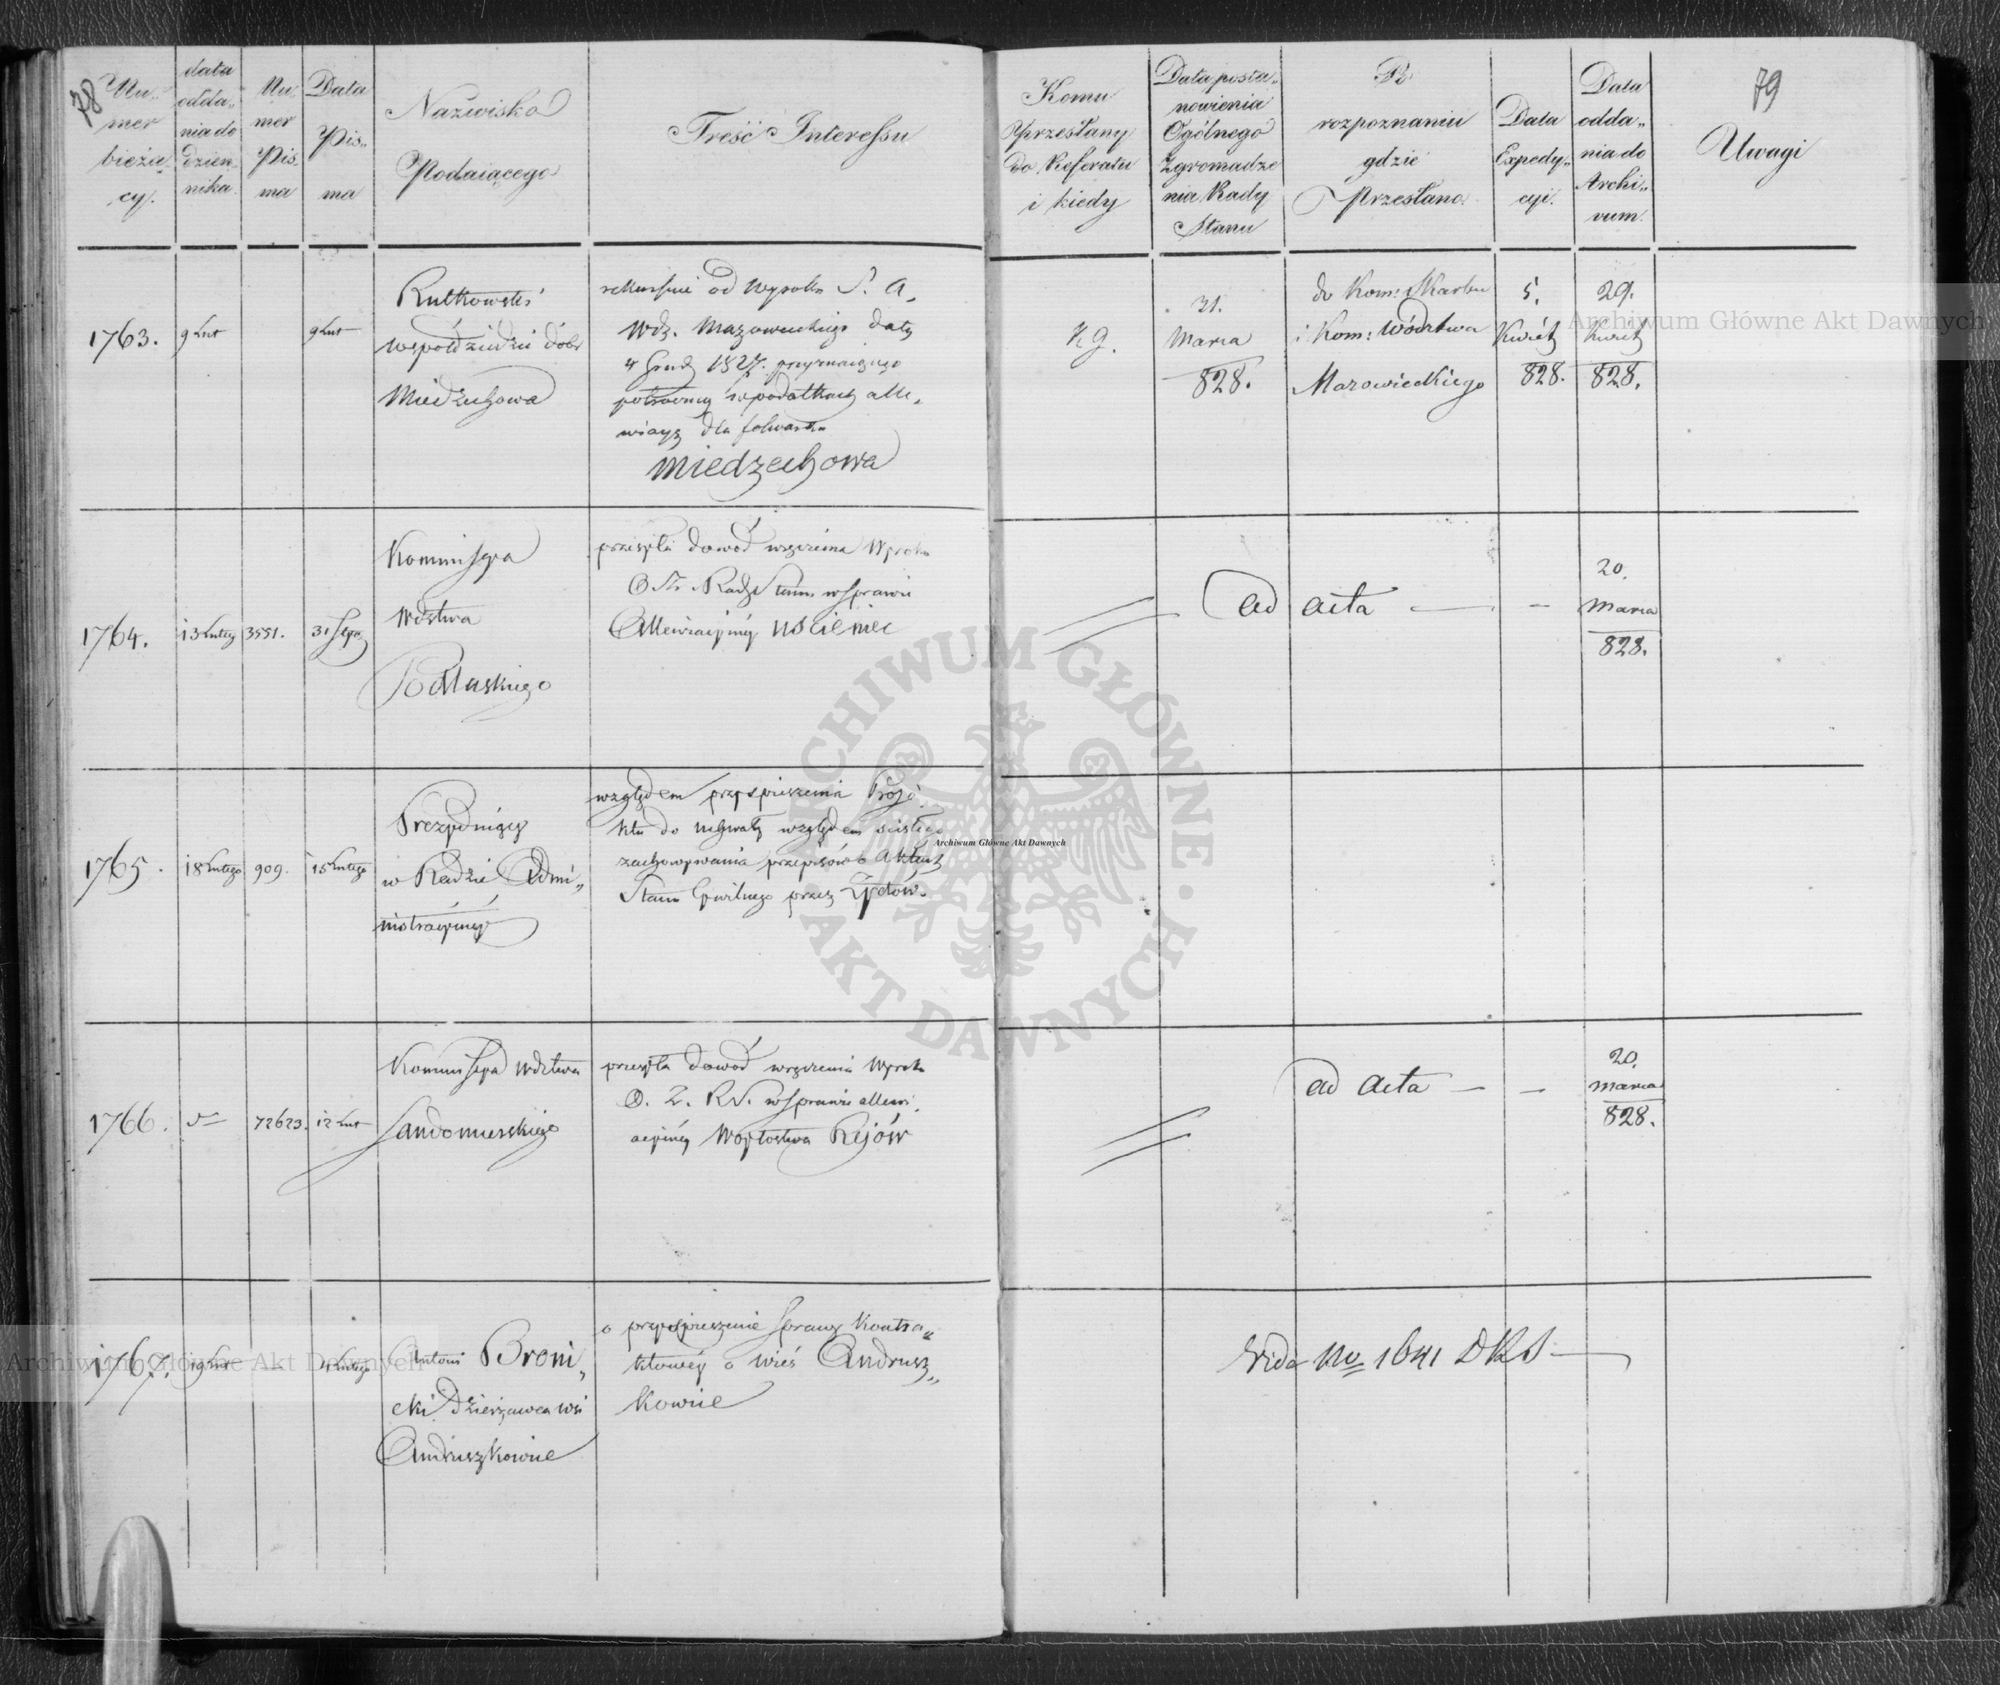 78
Nu-
mer
bieżą-
cy.
data
odda-
nia do
dzien-
nika.
Nu-
mer
Pis-
ma
Data
Pis-
ma
Nazwisko
Podaiącego
Treść Interessu
Komu
Przesłany
do Referatu
i kiedy
Data posta-
nowienia
Ogólnego
Zgromadze
nia Rady
Stanu
Po
rozpoznaniu
gdzie
Przesłano.
Data
Expedy-
cyi.
Data
odda-
nia do
Archi-
vum.
79
Uwagi
1763.
9 Lut
9 Lut
Rutkowski
współdziedzic dóbr
Miedzechowa
rekursuie od wyroku S. A.
Wdz. Mazowieckiego daty
4 Grud 1827. przyznaiącego
w podatkach alle-
wiacyą dla folwarku
Miedzechowa
K g.
31.
Marca
828.
do Kom: Skarbu
i Kom: Wództwa
Mazowieckiego
5.
Kwiet
828.
29.
Kwiet
828.
1764.
13 Lutego
3551.
31 Sty
Kommissya
Wdztwa
Podlaskiego
przesyła dowód wręczenia Wyroku
O. Z. Rady Stanu w sprawie
Allewiacyjnéy Uścieniec
ad acta
20.
Marca
828.
1765.
18 Lutego
909.
15 Lutego
Prezyduiący
w Radzie Admi-
nistracyinéy
względem przyspieszenia Proje
ktu do uchwały względem ścisłego
zachowywania przepisów o Aktach
Stanu Cywilnego przez Żydów.
1766.
72623.
12 Lut
Kommissya Wdztwa
Sandomierskiego
przesyła dowód wręczenia Wyroku
O. Z. R S. w sprawie allewi
acyinéy Wóytostwa Rejów
ad acta
20.
Marca
828.
1767.
19 Lut
Lutego
Antoni Broni-
cki Dzierżawca wsi
Andruszkowie
o przyspieszenie sprawy kontra-
ktowéy o wieś Andrusz-
kowie
Vide No 1641 DRS
Archiwum Główne Akt Dawnych
Archiwum Główne Akt Dawnych
Archiwum Główne Akt Dawnych
ARCHIWUM GŁÓWNE · AKT DAWNYCH ·